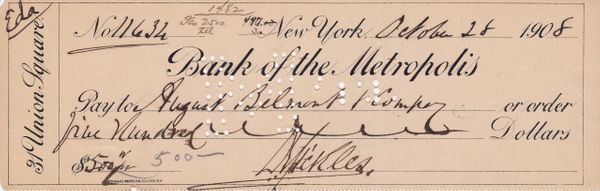 Eda
31 Union Square.
1482
No 11634
New York, October 28 1908
Bank of the Metropolis
Pay to August Belmont & Compy or order
five hundred Dollars
$500
500-
D Sickles.